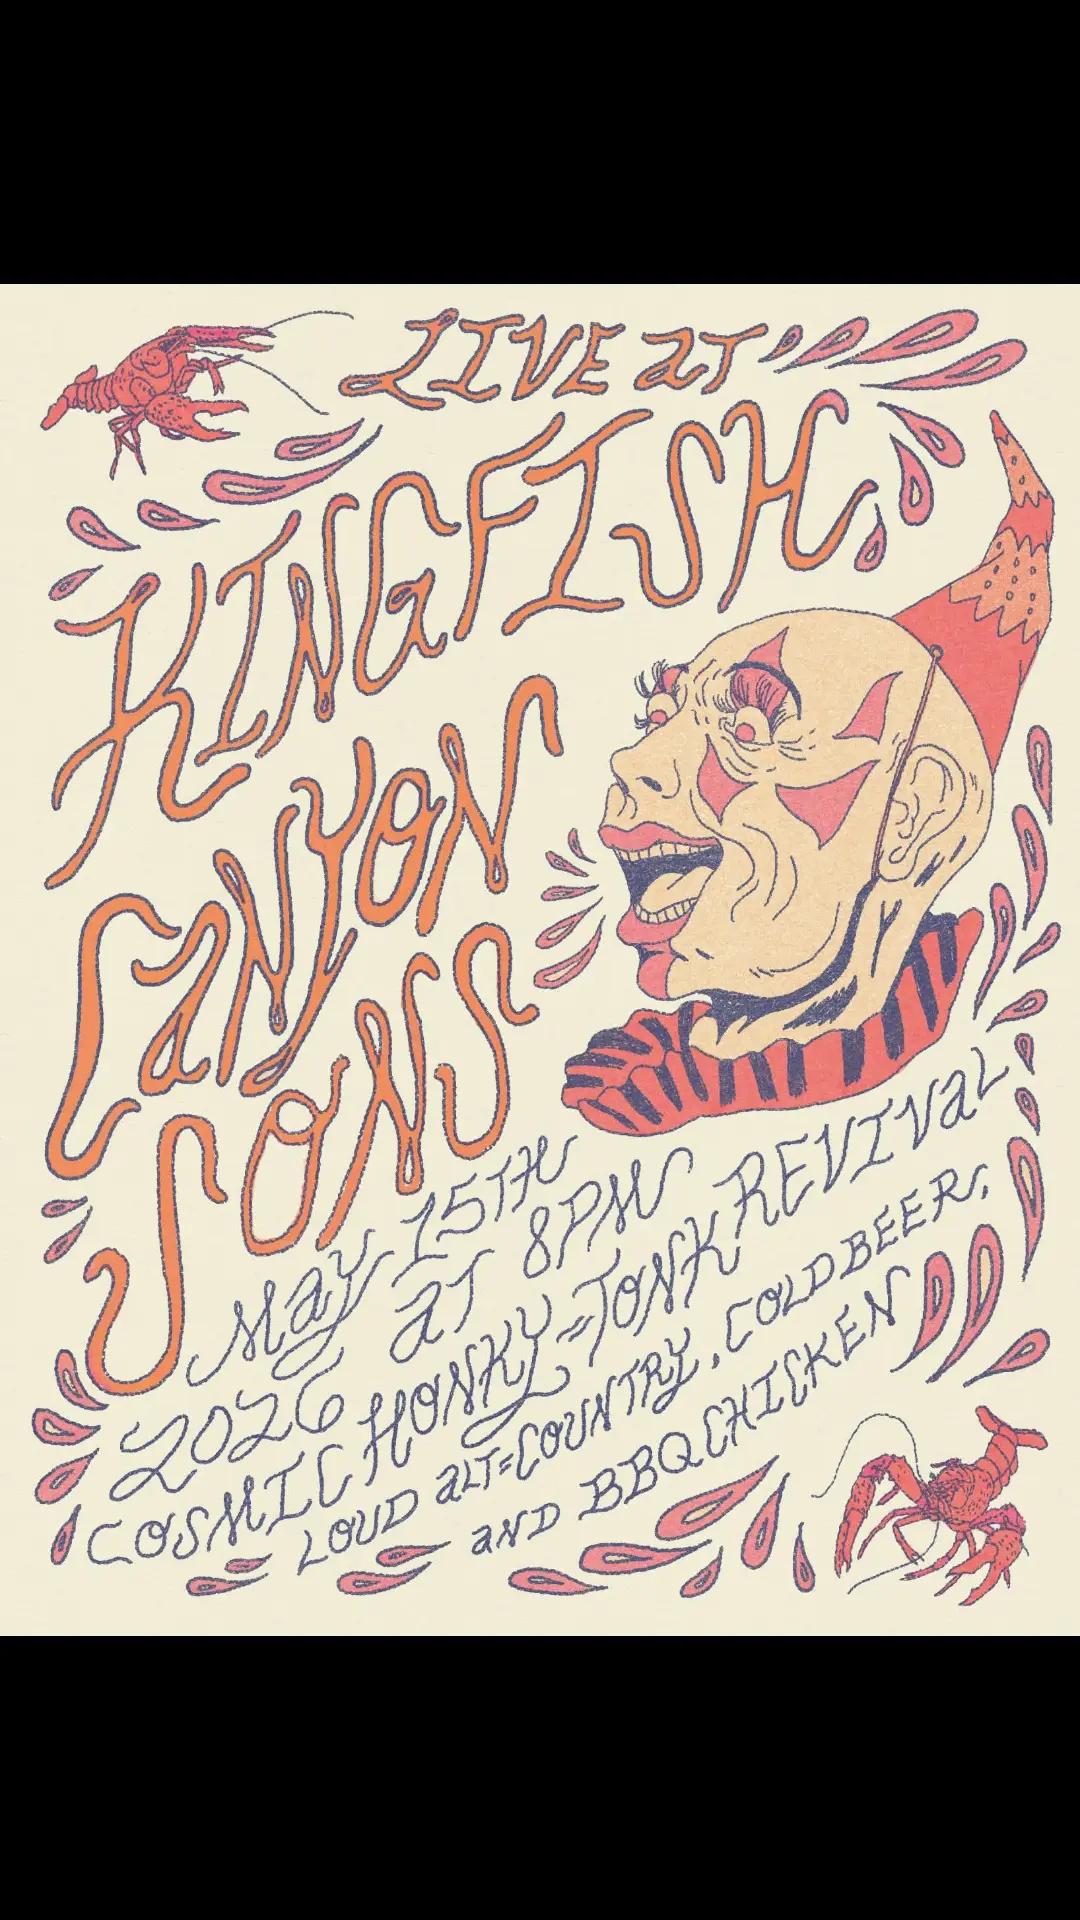 LIVE aT
KINGFISH
CaNYON
SONS
May 15TH
2026 aT 8PM
COSMIC HONKY=TONK REVIVaL
LOUD aLT=COUNTRY, COLD BEER,
aND BBQ CHICKEN